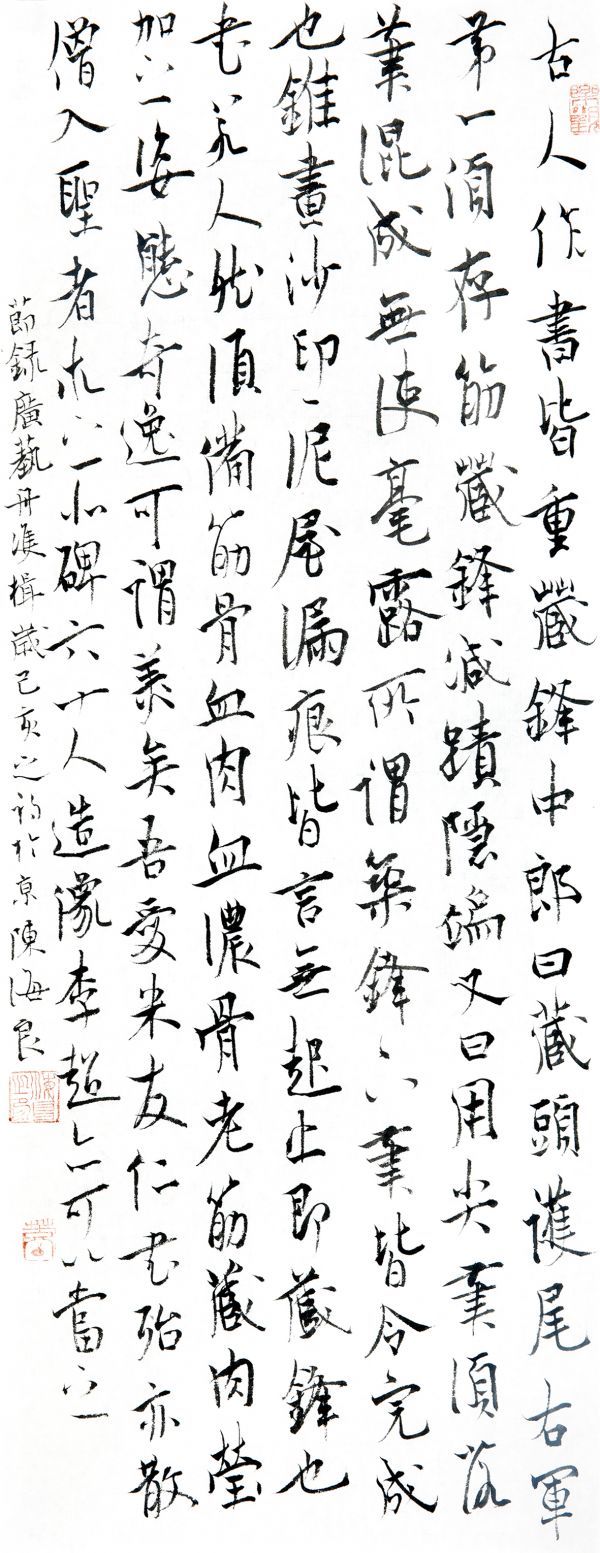 古人作書皆重藏鋒中郎曰藏頭護尾右軍
第一須存筋藏鋒滅蹟隱端又曰用尖筆須落
筆混成無使毫露所謂築鋒下筆皆令完成
也錐畫沙印印泥屋漏痕皆言無起止即藏鋒也
書若人然須備筋骨血肉血濃骨老筋藏肉瑩
加之姿態奇逸可謂美矣吾愛米友仁書殆亦散
僧入聖者求之北碑六十人造像李超亦可以當之
節錄廣藝舟雙楫歲己亥之於京陳海良